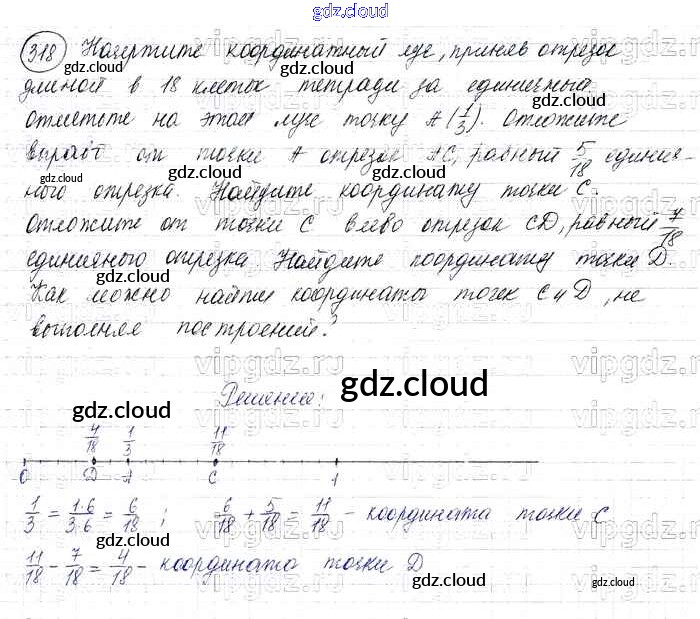 gdz.cloud
318 Начертите координатный луч, приняв отрезок
длиной в 18 клеток тетради за единичный.
Отметьте на этом луче точку A(1/3). Отложите
вправо от точки A отрезок AC, равный 5/18 единич-
ного отрезка. Найдите координату точки C.
Отложите от точки C влево отрезок CD, равный 7/18
единичного отрезка. Найдите координату точки D.
Как можно найти координаты точек C и D, не
выполняя построений?
Решение:
4/18 1/3 11/18
0 D A C 1
1/3 = 1·6/3·6 = 6/18 ; 6/18 + 5/18 = 11/18 - координата точки C
11/18 - 7/18 = 4/18 - координата точки D
gdz.cloud
gdz.cloud
gdz.cloud
gdz.cloud
gdz.cloud
gdz.cloud
gdz.cloud
gdz.cloud
gdz.cloud
gdz.cloud
gdz.cloud
gdz.cloud
gdz.cloud
vipgdz.ru
vipgdz.ru
vipgdz.ru